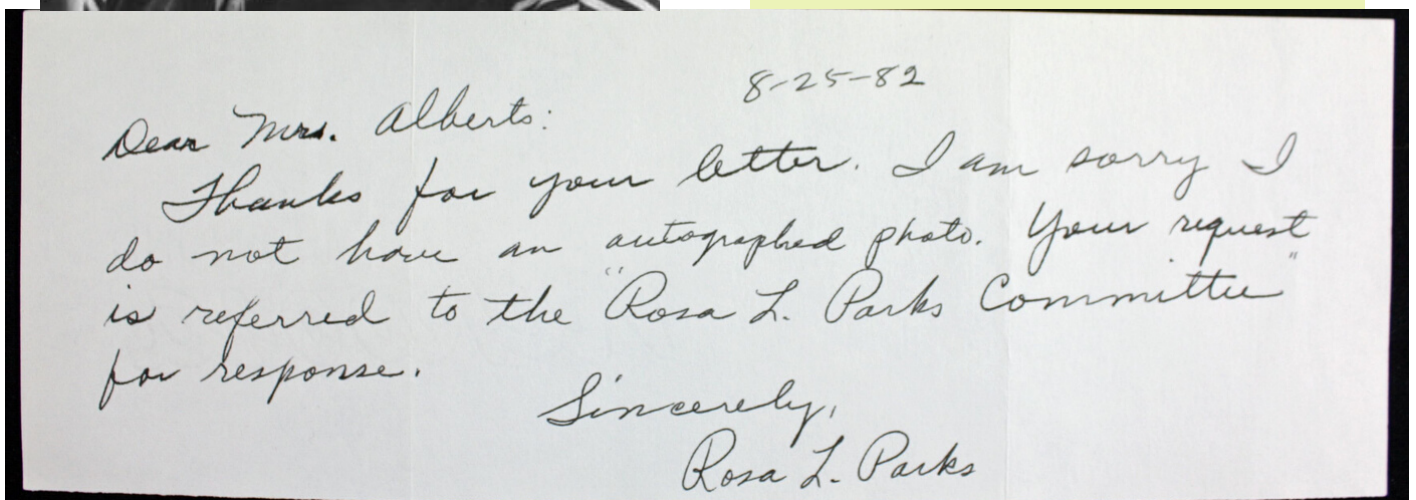 8-25-82
Dear Mrs. Alberts:
Thanks for your letter. I am sorry I
do not have an autographed photo. Your request
is referred to the "Rosa L. Parks Committee"
for response.
Sincerely,
Rosa L. Parks